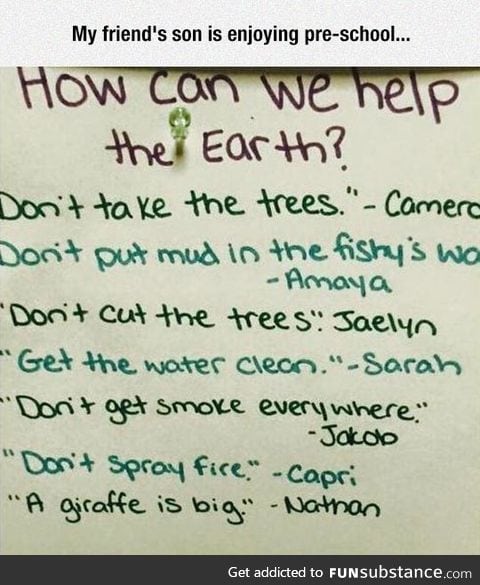 My friend's son is enjoying pre-school...
How can we help
the Earth?
Don't take the trees." - Camero
Don't put mud in the fishy's wa
- Amaya
"Don't cut the trees". Jaelyn
"Get the water clean." - Sarah
"Don't get smoke everywhere."
- Jakob
"Don't spray fire." - Capri
"A giraffe is big." - Nathan
Get addicted to FUNsubstance.com